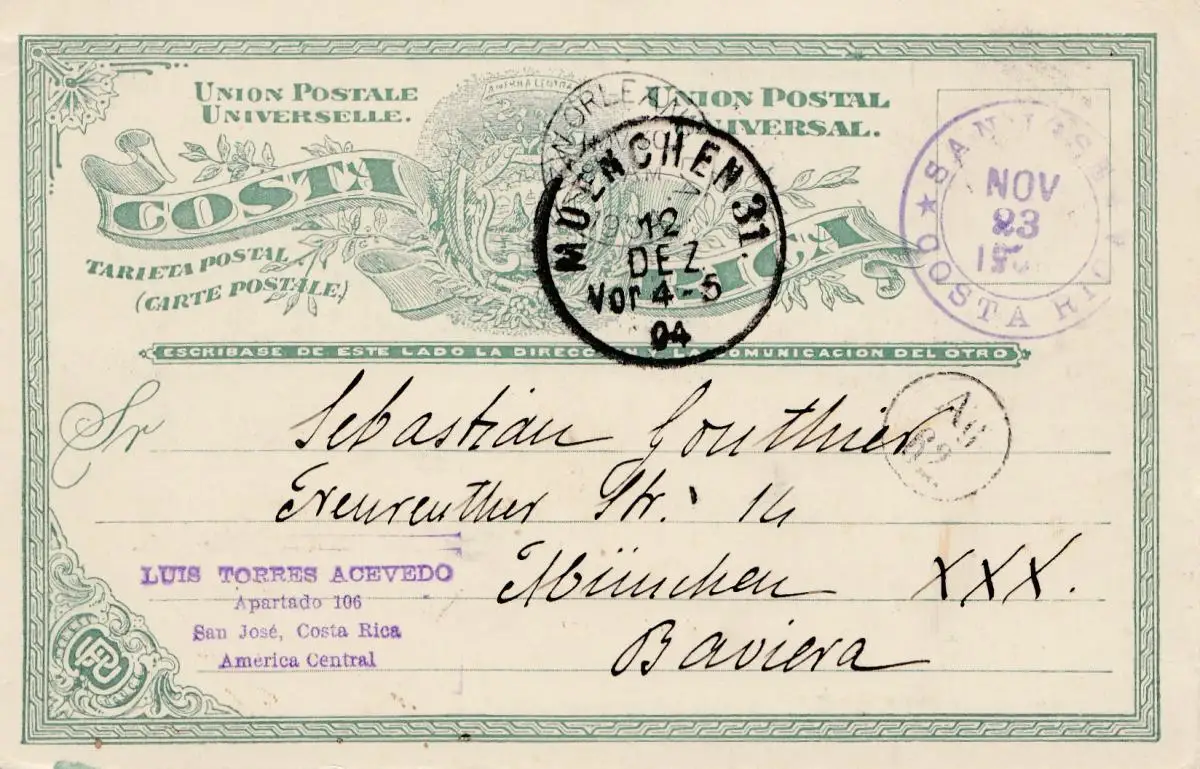 UNION POSTALE
UNIVERSELLE.
UNION POSTAL
UNIVERSAL.
COSTA RICA
TARJETA POSTAL
(CARTE POSTALE)
MUENCHEN 31.
12
DEZ.
Vor 4-5
04
SAN JOSE
NOV
23
COSTA RICA
ESCRIBASE DE ESTE LADO LA DIRECCION Y LA COMUNICACION DEL OTRO
Sr Sebastian Gouthier
Neureuther Str. 14
München XXX.
Baviera
LUIS TORRES ACEVEDO
Apartado 106
San José, Costa Rica
América Central